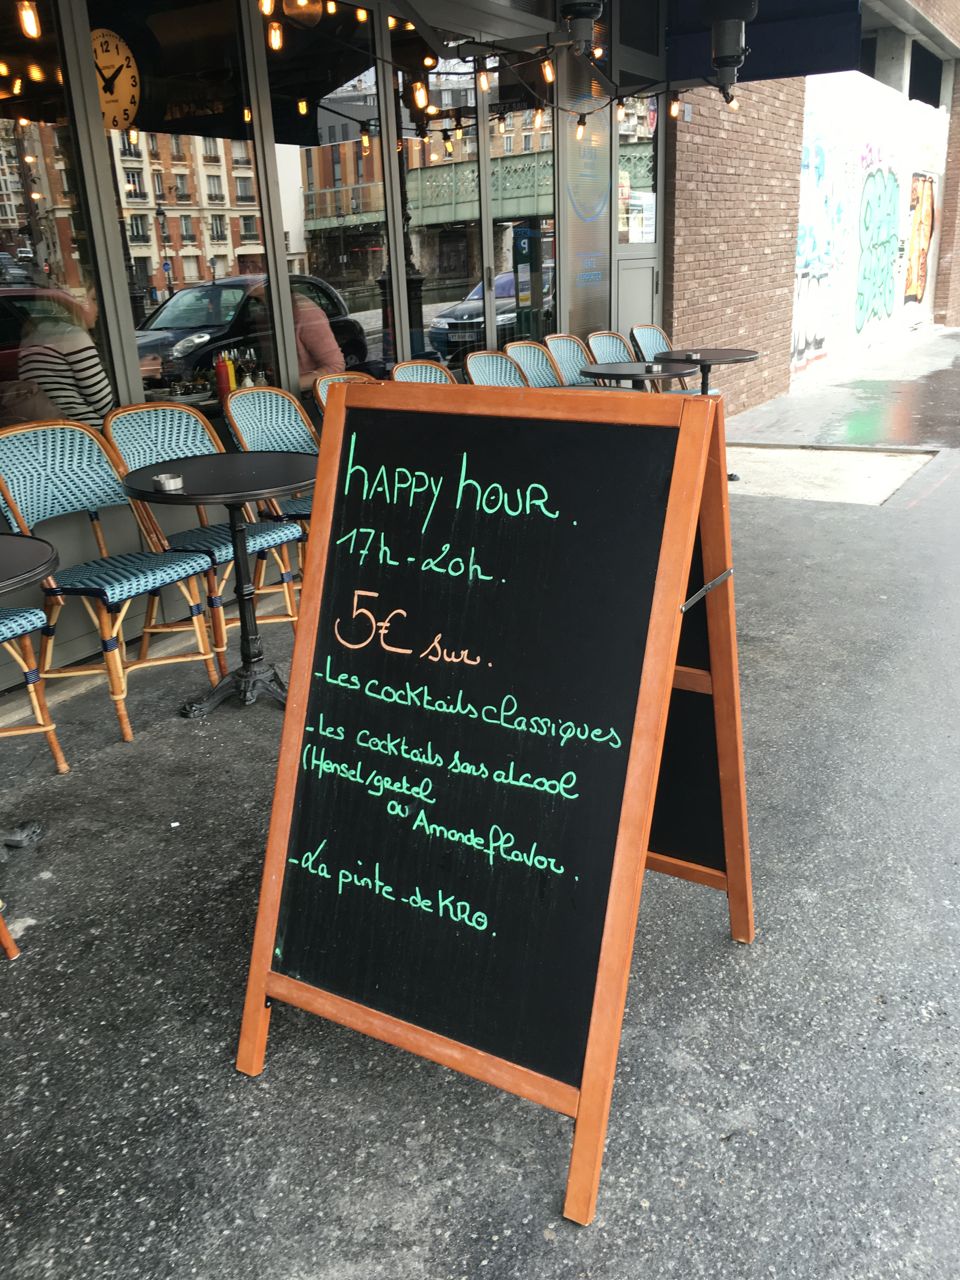 happy hour.
17h - 20h.
5€ sur.
- Les cocktails classiques
- Les cocktails sans alcool
(Hensel/gretel
ou Amande flavor.
- La pinte - de KRO.
12
1
2
3
4
5
6